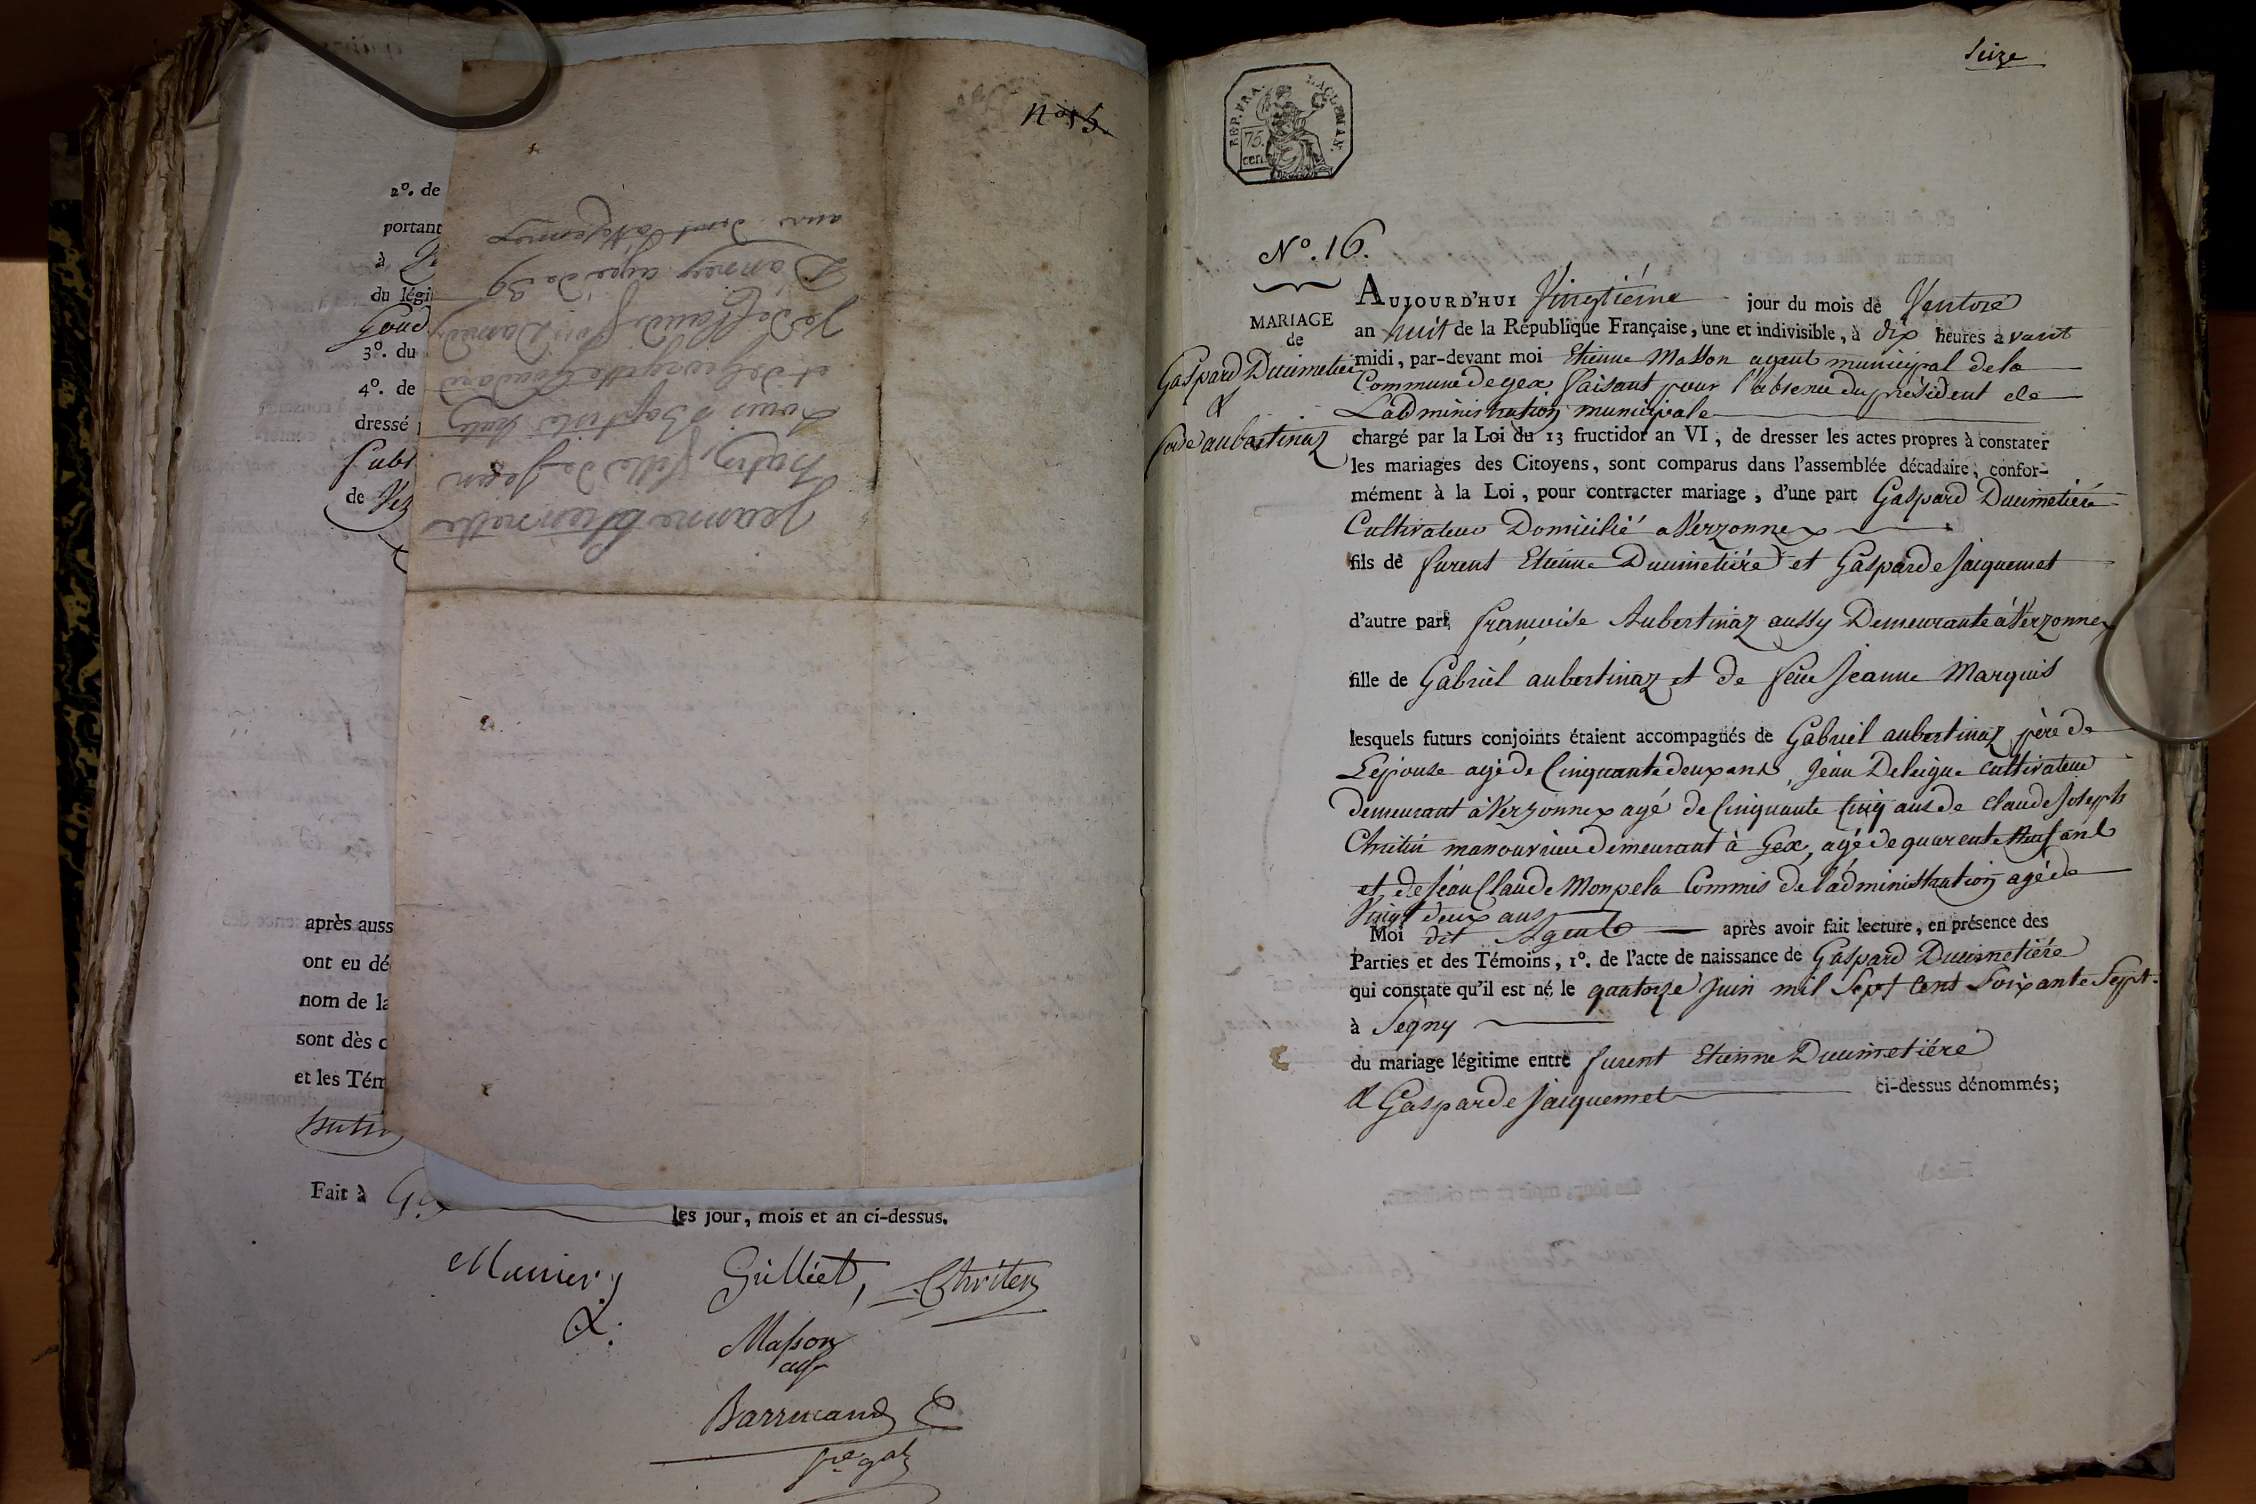 nº 15.
2º. de
portant
à
du légi
Goud
3º. du
4º. de
dressé
Subs
de Vez
Jeanne Etiennette
hutin, fille de Jean
Louis Baptiste hutin
et de Georgette Goudard
Ve de Claude fois Damey
D'ornex agée de 39
ans
après auss
ont eu dé
nom de la
sont dès c
et les Tém
hutin
Fait à Gex
les jour, mois et an ci-dessus.
Munier
Gilliet, Christin
Masson
agt
Barrucand
sre gal
Seize
REP. FRA.
75.
cen.
Nº. 16.
MARIAGE
de
Gaspard Ducimetiére
&
foise aubertinaz
AUJOURD'HUI Vingtiéme jour du mois de Ventose
an huit de la République Française, une et indivisible, à dix heures avant
midi, par-devant moi Etienne Masson agent municipal de la
Commune de gex faisant pour l'absence du président de
L'administration municipale
chargé par la Loi du 13 fructidor an VI, de dresser les actes propres à constater
les mariages des Citoyens, sont comparus dans l'assemblée décadaire, confor-
mément à la Loi, pour contracter mariage, d'une part Gaspard Ducimetiére
Cultivateur Domicilié a Verzonnex
fils de furent Etienne Ducimetiére et Gasparde Jaiquemet
d'autre part, françoise Aubertinaz aussy Demeurante à Verzonnex
fille de Gabriel aubertinaz et de feüe Jeanne Marquis
lesquels futurs conjoints étaient accompagnés de Gabriel aubertinaz père de
L'epouse agé de Cinquante deux ans, Jean Deleigue cultivateur
demeurant à Verzonnex agé de Cinquante Cinq ans de Claude Joseph
Christin manouvrier demeurant à Gex, agé de quarente Neuf ans
et de Jean Claude Monpela Commis de l'administration agé de
Vingt deux ans
Moi dit Agent après avoir fait lecture, en présence des
Parties et des Témoins, 1º. de l'acte de naissance de Gaspard Ducimetiére
qui constate qu'il est né le quatorze Juin mil Sept Cent Soixante Sept.
à Segny
du mariage légitime entre furent Etienne Ducimetiére
& Gasparde Jaiquemet ci-dessus dénommés;